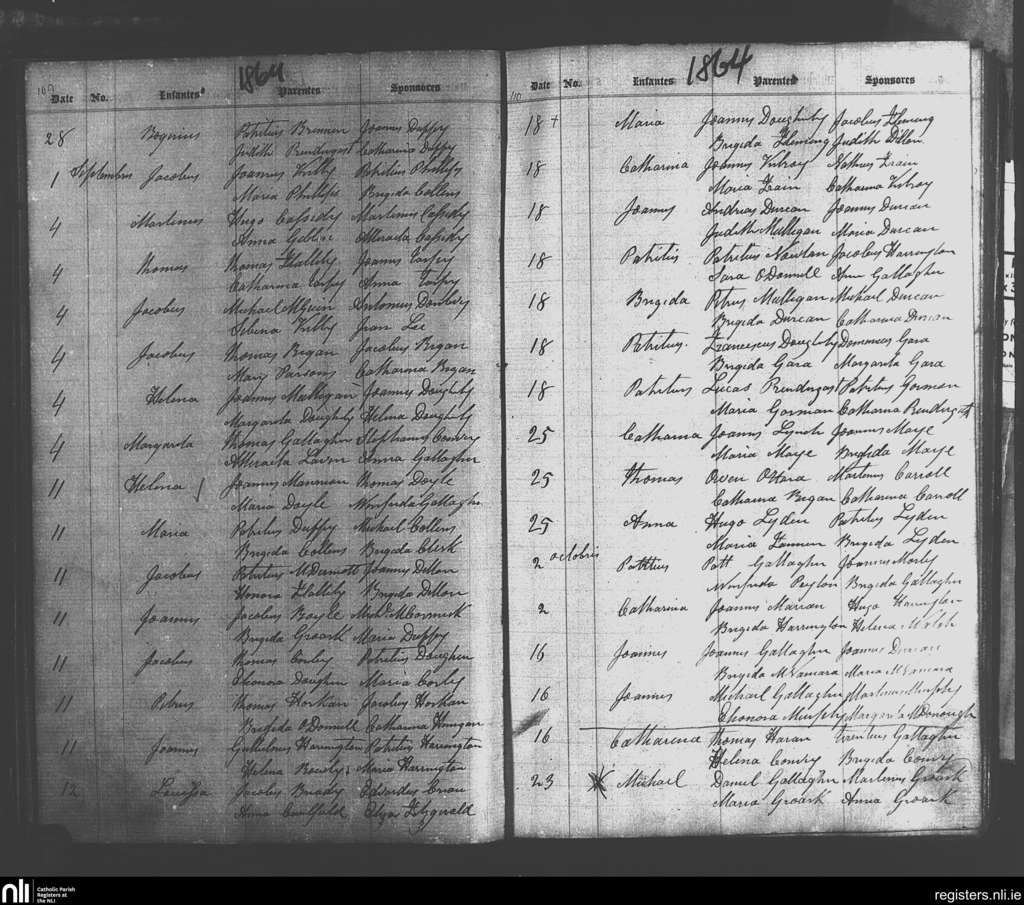 1864
107
Date No. Infantes Parentes Sponsores
28 Patritius Brennan Joannes Duffy
Judith Prendergast Catharina Duffy
1 Septembris Jacobus Joannes Kilby Patritius Phillips
Maria Phillips Brigida Collins
4 Martinus Hugo Cassidy Martinus Cassidy
Anna Giblin Cassidy
4 Thomas Thomas Flatlely Joannes
Catharina Anna
4 Jacobus Michael Antonius
Sibina Kilby Lee
4 Jacobus Thomas Regan Jacobus Regan
Mary Parsons Catharina Regan
4 Helena Joannes Mulligan Joannes Doughirty
Margareta Doughirty Helena Doughirty
4 Margareta Thomas Gallagher Stephanus Conway
Lavin Anna Gallagher
11 Helena Joannes Thomas Doyle
Maria Doyle Winifrida Gallagher
11 Maria Patritius Duffy Michael Collins
Brigida Collins Brigida Clerk
11 Jacobus Patritius McDermott Joannes Dillon
Honora Flatlely Brigida Dillon
11 Joannes Jacobus Boyle McCormick
Brigida Groark Maria Duffy
11 Jacobus Thomas Corley Patritius Doughen
Elionora Doughen Maria Corley
11 Petrus Thomas Horkan Jacobus Horkan
Brigida ODonnell Catharina
11 Joannes Gulielmus Harrington Patritius Harrington
Helena Maria Harrington
12 Jacobus Brady Edwardus
Anna Caulfield Eliza Fitzgerald
1864
Date No. Infantes Parentes Sponsores
18 + Maria Joannes Doughirty Jacobus Fleming
Brigida Fleming Judith Dillon
18 Catharina Joannes Kilroy
Maria Catharina Kilroy
18 Joannes Andreas Duncan Joannes Duncan
Judith Mulligan Maria Duncan
18 Patritius Patritius Nowlan Jacobus Harrington
Sara ODonnell Ann Gallagher
18 Brigida Petrus Mulligan Michael Duncan
Brigida Duncan Catharina Duncan
18 Patritius Franciscus Doughirty Dominicus Gara
Brigida Gara Margarita Gara
18 Patritius Lucas Prendergast Patritius Gorman
Maria Gorman Catharina Prendergast
25 Catharina Joannes Lynch Joannes Maye
Maria Maye Brigida Maye
25 Thomas Owen OHara Martinus Carroll
Catharina Regan Catharina Carroll
25 Anna Hugo Lyden Patritius Lyden
Maria Brigida Lyden
2 octobris Patritius Patt Gallagher Joannes Morley
Winifrida Peyton Brigida Gallagher
2 Catharina Joannes Marian Hugo Harrington
Brigida Harrington Helena Walsh
16 Joannes Joannes Gallagher Joannes Duncan
Brigida McNamara Maria McNamara
16 Joannes Michael Gallagher Martinus Murphy
Elionora Murphy Margarita McDonough
16 Catharina Thomas Haran Gallagher
Helena Conwry Brigida Conwry
23 Michael Daniel Gallagher Martinus Groark
Maria Groark Anna Groark
nli Catholic Parish
Registers at
the NLI
registers.nli.ie